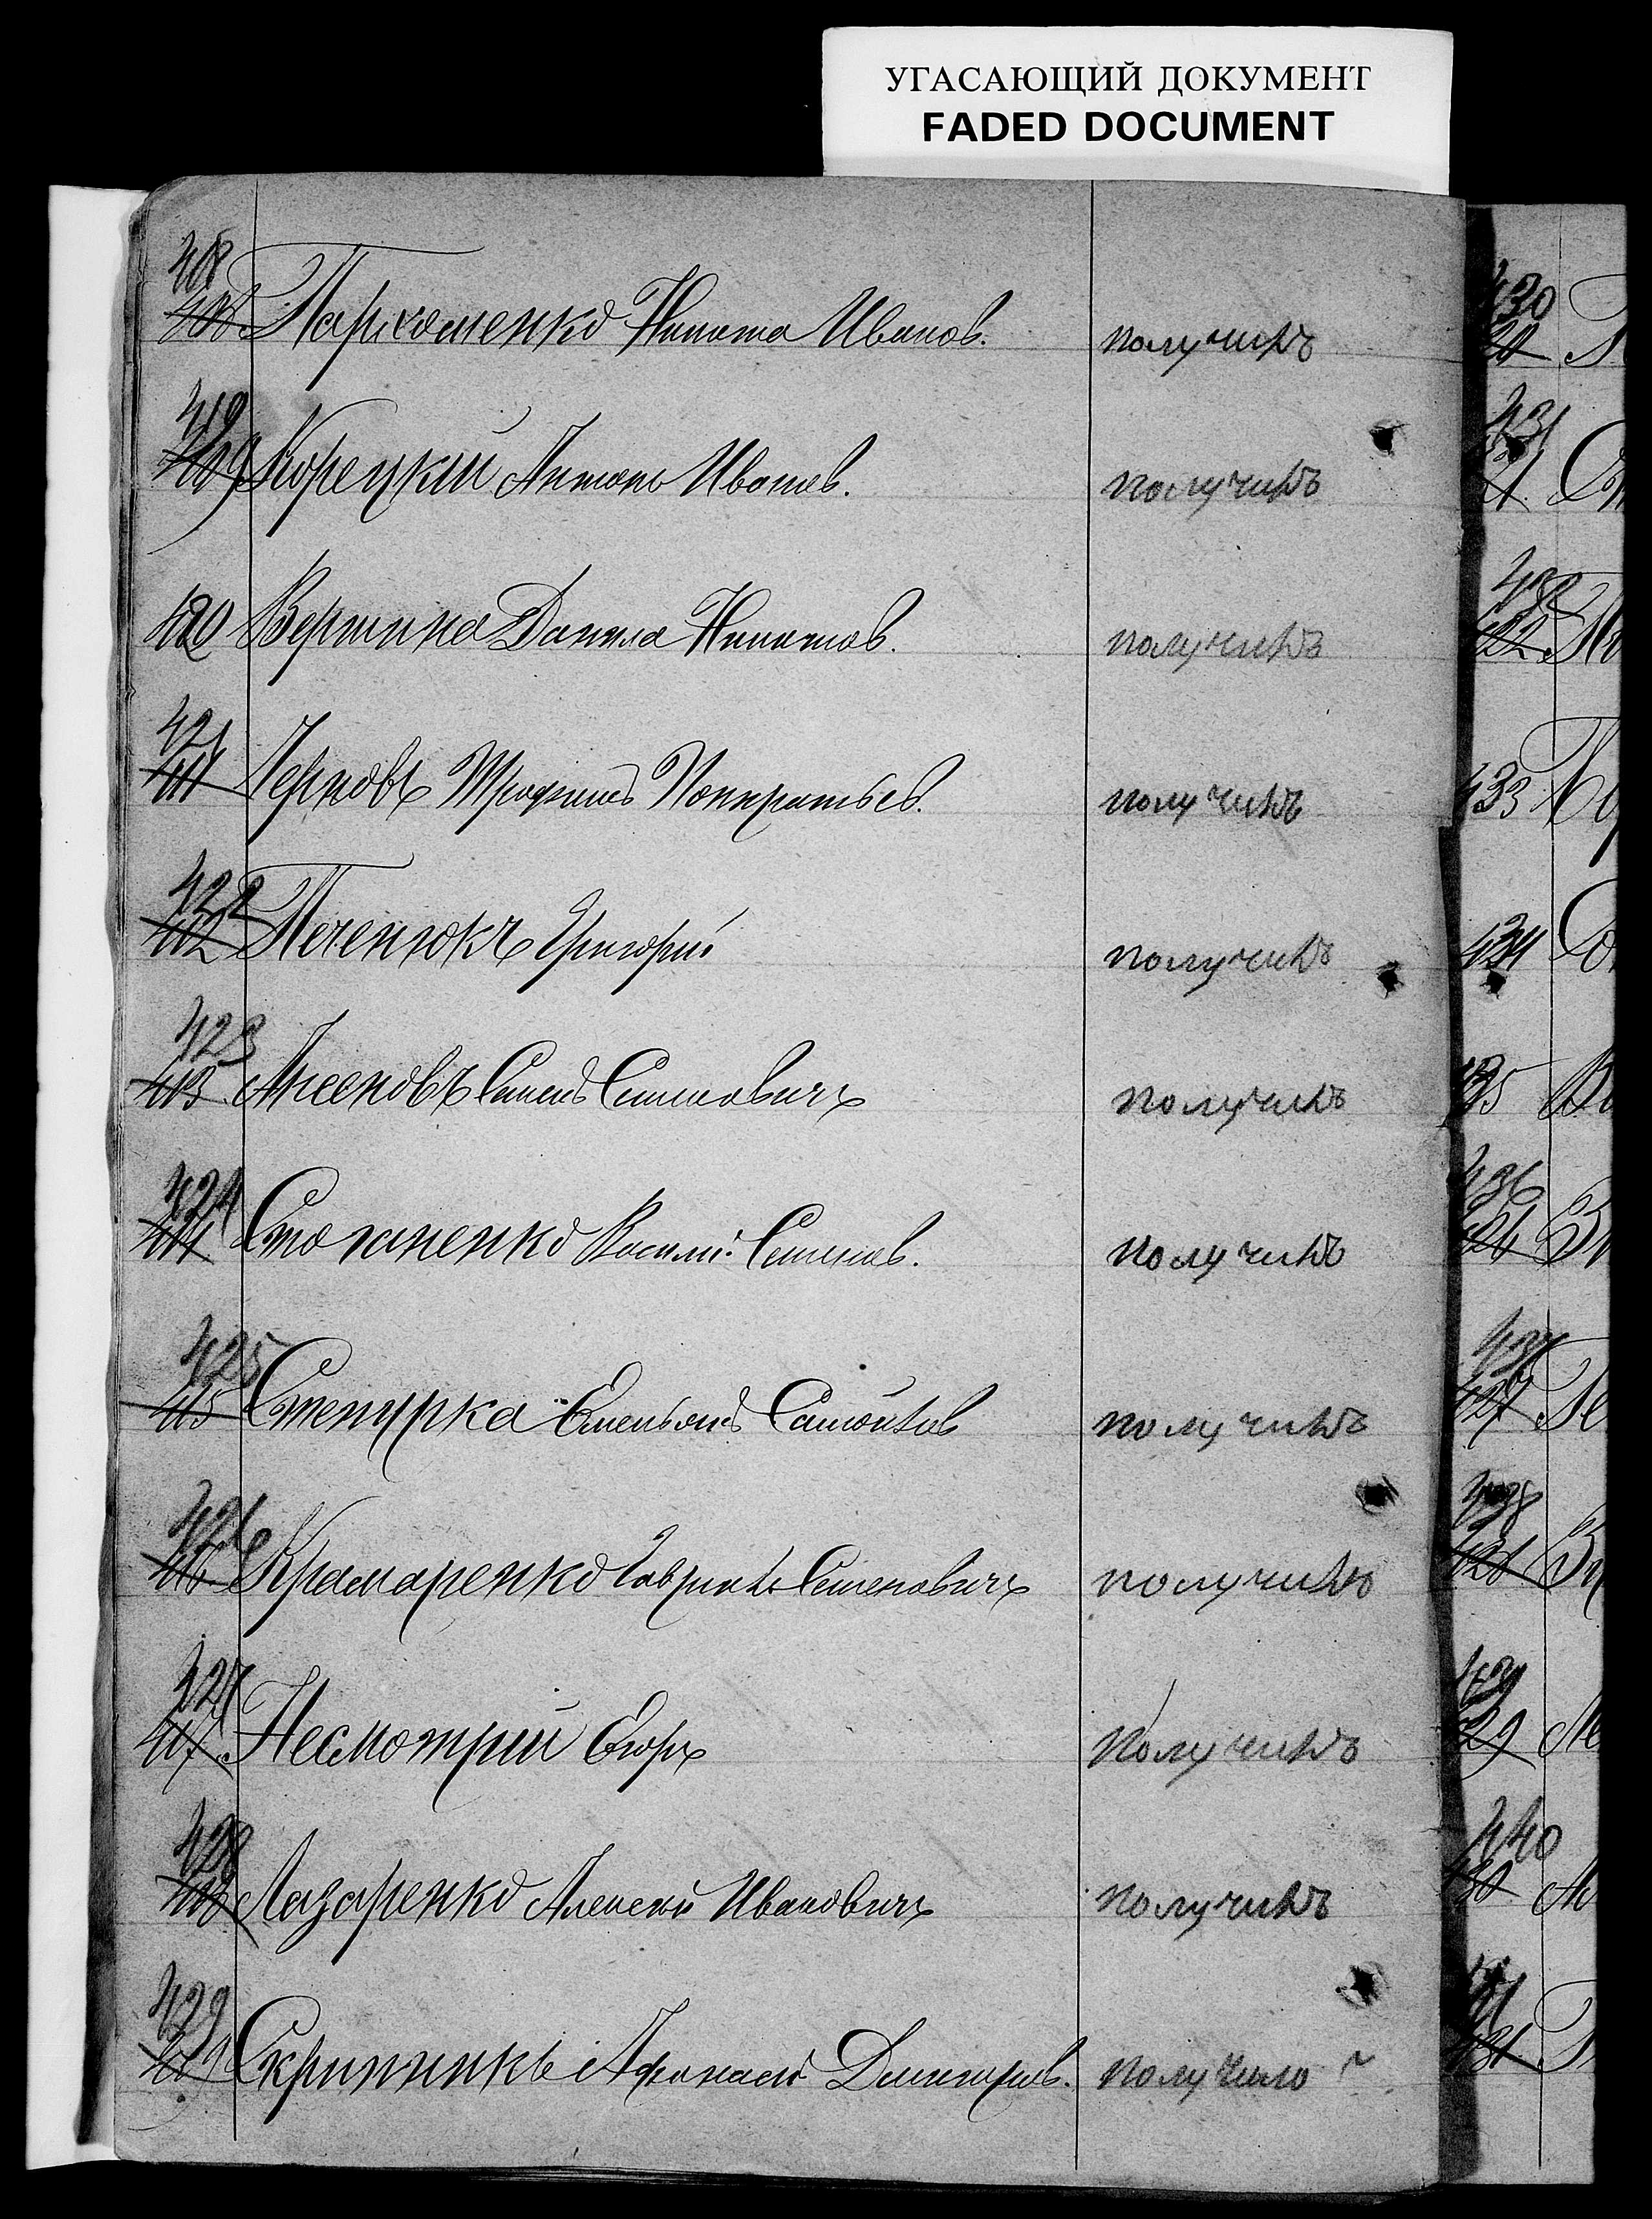 УГАСАЮЩИЙ ДОКУМЕНТ
FADED DOCUMENT
418
408 Пархоменко Никита Иванов. получилъ
419
409 Корецкий Антонъ Иванов. получилъ
420 Вертика Данила Никитов. получилъ
421
411 Черновъ Трофимъ Понкратьев. получилъ
422
412 Печенюкъ Григорий получилъ
423
413 Аксеновъ Семенъ Семеновичъ получилъ
424
414 Стогниенко Василий Семенов. получилъ
425
415 Стенурка Емельянъ Самойлов получилъ
426
416 Крамаренко Гавриилъ Семеновичъ получилъ
427
417 Несмотрий Егоръ получилъ
428
418 Лазаренко Алексей Ивановичъ получилъ
429
419 Скрипникъ Афанасий Дмитров. получило
430
431
433
434
435
436
426
437
427
438
428
439
429
440
430
431